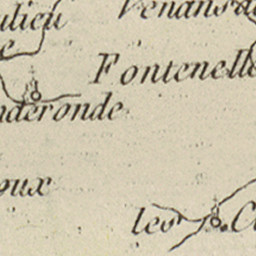 ulieu
Venans
Fontenelle
nderonde
oux
les